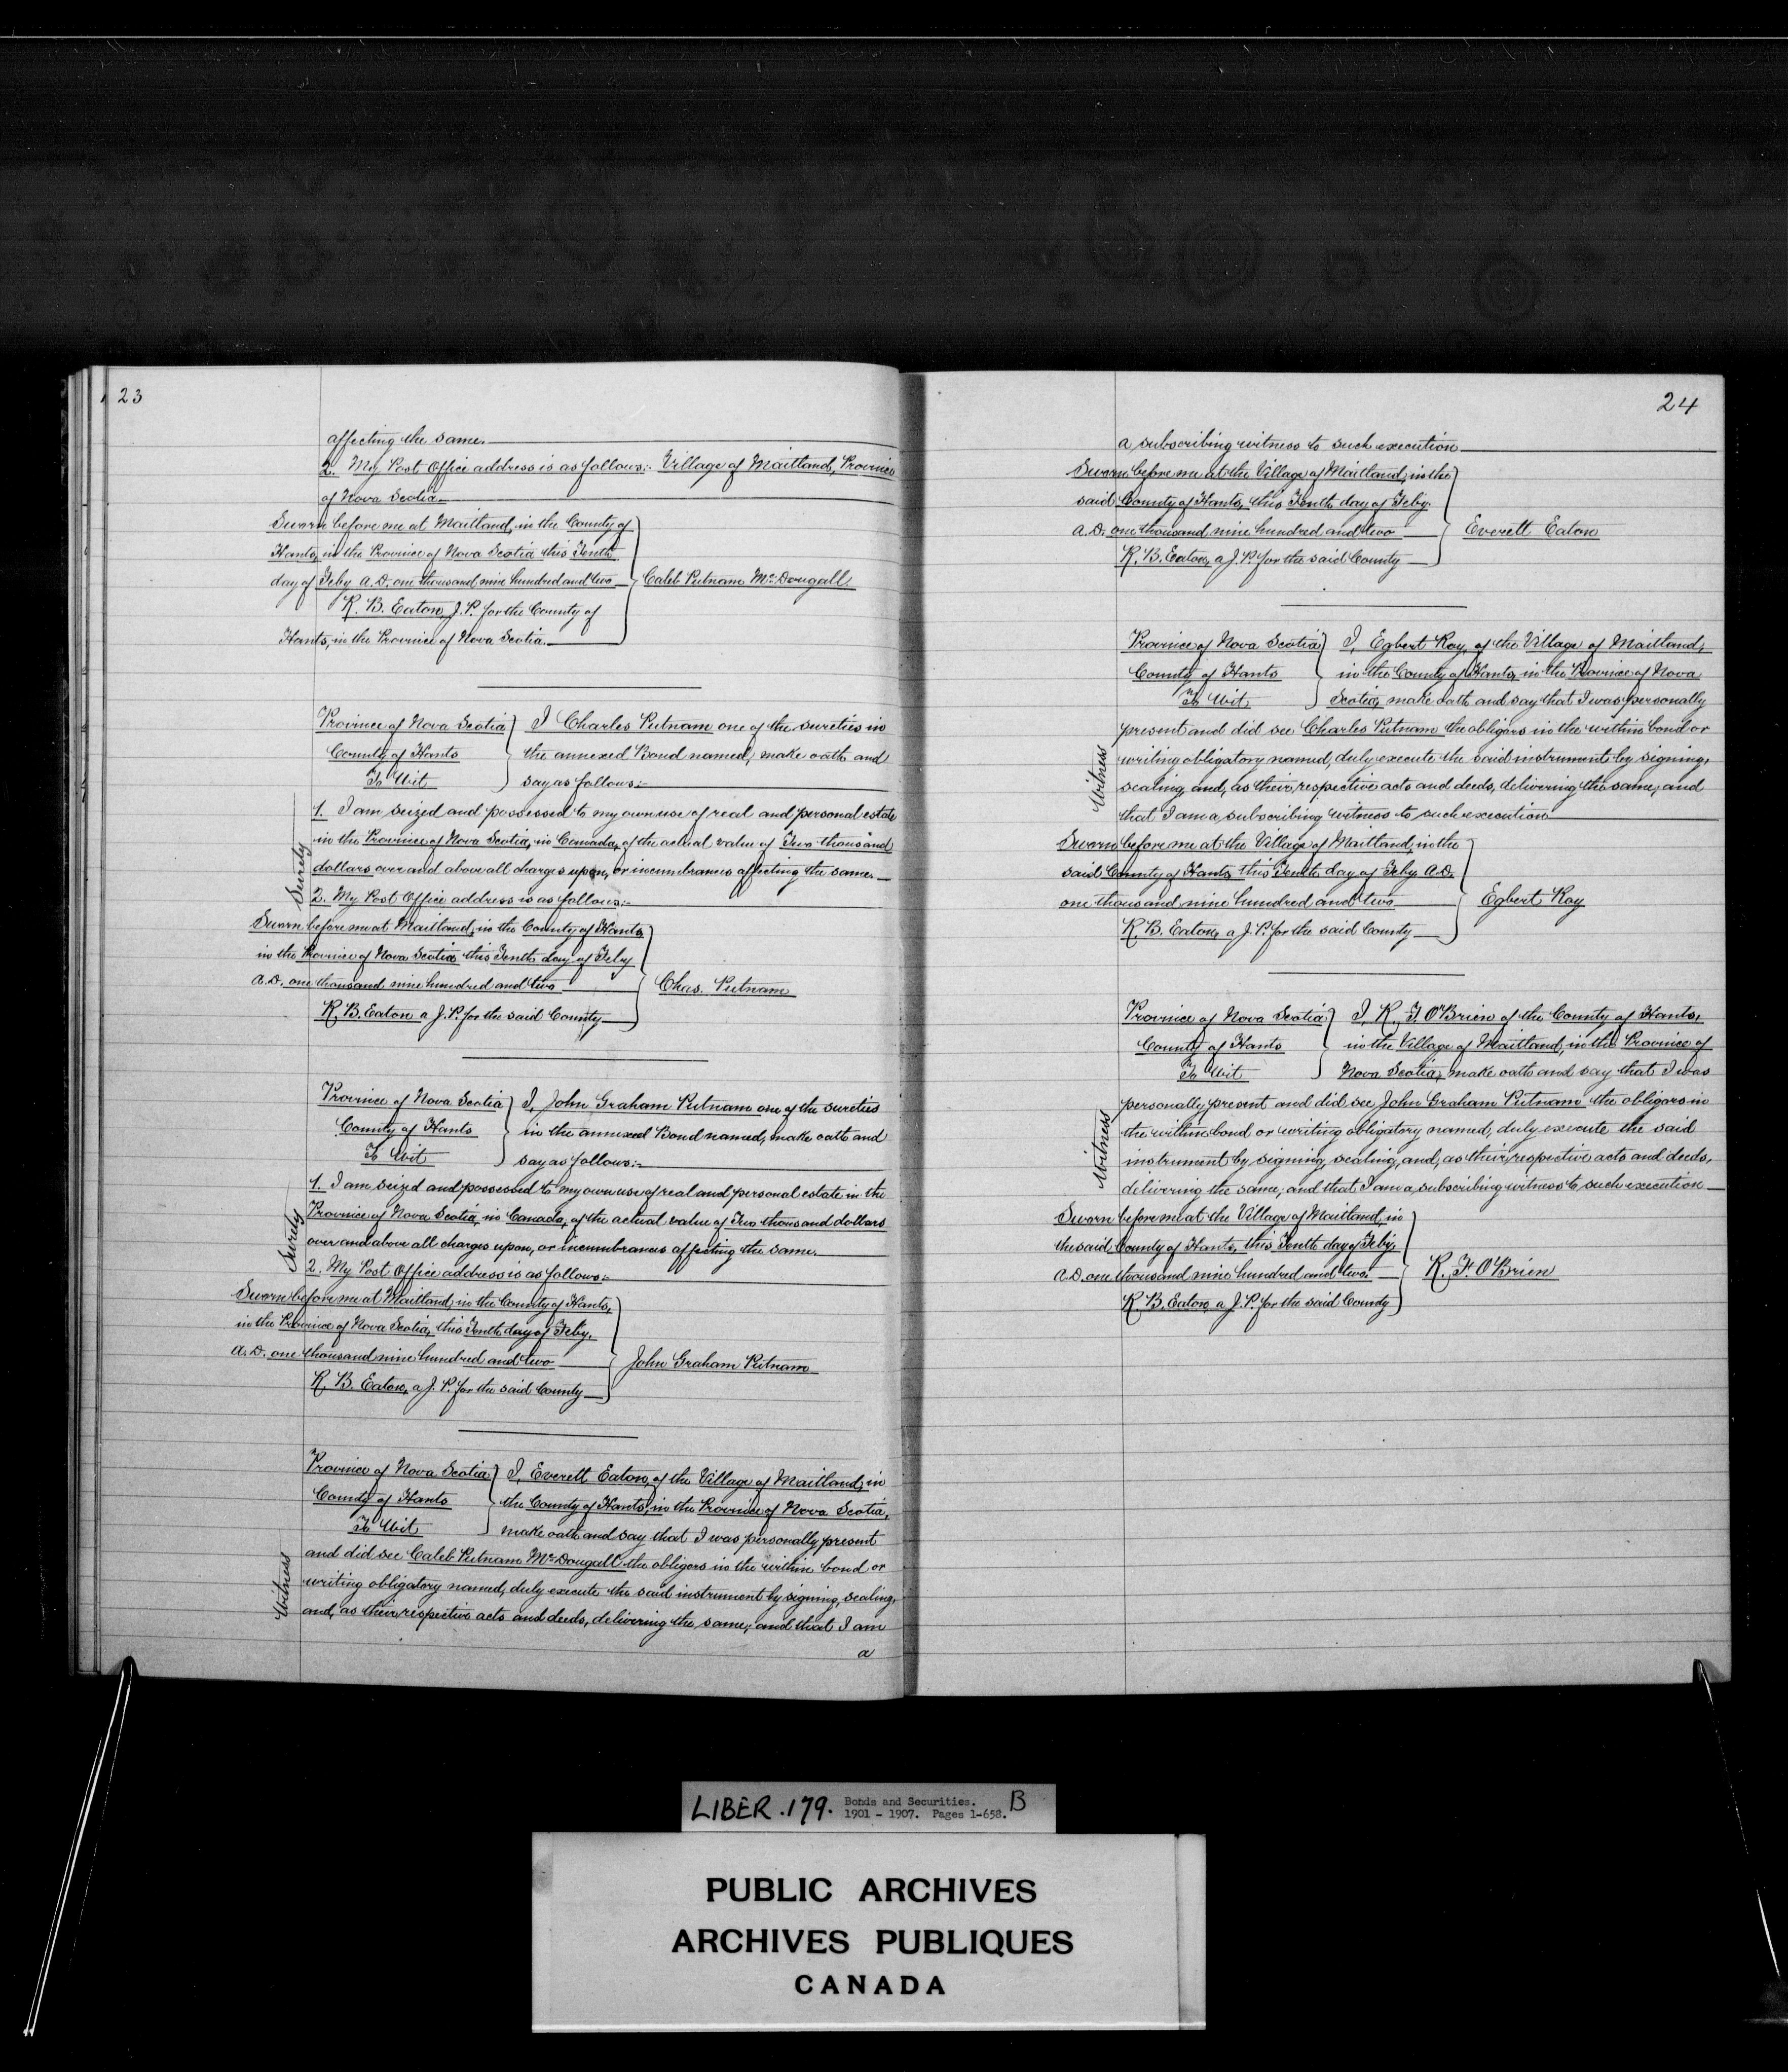 23
affecting the same.
2. My Post Office address is as follows:- Village of Maitland, Province
of Nova Scotia
Sworn before me at Maitland, in the County of
Hants, in the Province of Nova Scotia this Tenth
day of Feby A.D. one thousand nine hundred and two
Caleb Putnam McDougall
K. B. Eaton, J.P. for the County of
Hants, in the Province of Nova Scotia.
Province of Nova Scotia
County of Hants
To Wit
I Charles Putnam one of the sureties in
the annexed Bond named, make oath and
say as follows:-
Surety
1. I am seized and possessed to my own use of real and personal estate
in the Province of Nova Scotia, in Canada, of the actual value of Two thousand
dollars over and above all charges upon, or incumbrances affecting the same.
2. My Post Office address is as follows:-
Sworn before me at Maitland, in the County of Hants,
in the Province of Nova Scotia this Tenth day of Feby
A.D. one thousand nine hundred and two
Chas. Putnam
K. B. Eaton a J.P. for the said County
Province of Nova Scotia
County of Hants
To Wit
I, John Graham Putnam one of the sureties
in the annexed Bond named, make oath and
say as follows:-
Surety
1. I am seized and possessed to my own use of real and personal estate in the
Province of Nova Scotia, in Canada, of the actual value of Two thousand dollars
over and above all charges upon, or incumbrances affecting the same.
2. My Post Office address is as follows:-
Sworn before me at Maitland, in the County of Hants,
in the Province of Nova Scotia, this Tenth day of Feby,
A.D. one thousand nine hundred and two
John Graham Putnam
K. B. Eaton, a J.P. for the said County
Province of Nova Scotia
County of Hants
To Wit
I, Everett Eaton, of the Village of Maitland, in
the County of Hants, in the Province of Nova Scotia,
make oath and say that I was personally present
Witness
and did see Caleb Putnam McDougall the obligors in the within bond or
writing obligatory named, duly execute the said instrument by signing, sealing,
and, as their respective acts and deeds, delivering the same; and that I am
a
24
a subscribing witness to such execution
Sworn before me at the Village of Maitland, in the
said County of Hants, this Tenth day of Feby.
A.D. one thousand nine hundred and two
Everett Eaton
K. B. Eaton, a J.P. for the said County
Province of Nova Scotia
County of Hants
To Wit
I, Egbert Roy, of the Village of Maitland,
in the County of Hants, in the Province of Nova
Scotia, make oath and say that I was personally
Witness
present and did see Charles Putnam the obligors in the within bond or
writing obligatory named, duly execute the said instrument by signing,
sealing, and, as their respective acts and deeds, delivering the same, and
that I am a subscribing witness to such execution
Sworn before me at the Village of Maitland, in the
said County of Hants this Tenth day of Feby A.D.
one thousand nine hundred and two
Egbert Roy
K. B. Eaton, a J.P. for the said County
Province of Nova Scotia
County of Hants
To Wit
I, K. F. O'Brien of the County of Hants,
in the Village of Maitland, in the Province of
Nova Scotia, make oath and say that I was
Witness
personally present and did see John Graham Putnam the obligors in
the within bond or writing obligatory named, duly execute the said
instrument by signing, sealing, and, as their respective acts and deeds,
delivering the same; and that I am a subscribing witness to such execution
Sworn before me at the Village of Maitland, in
the said County of Hants, this Tenth day of Feby,
A.D. one thousand nine hundred and two.
K. F. O'Brien
K. B. Eaton, a J.P. for the said County
LIBER .179. Bonds and Securities. B
1901 - 1907. Pages 1-658.
PUBLIC ARCHIVES
ARCHIVES PUBLIQUES
CANADA